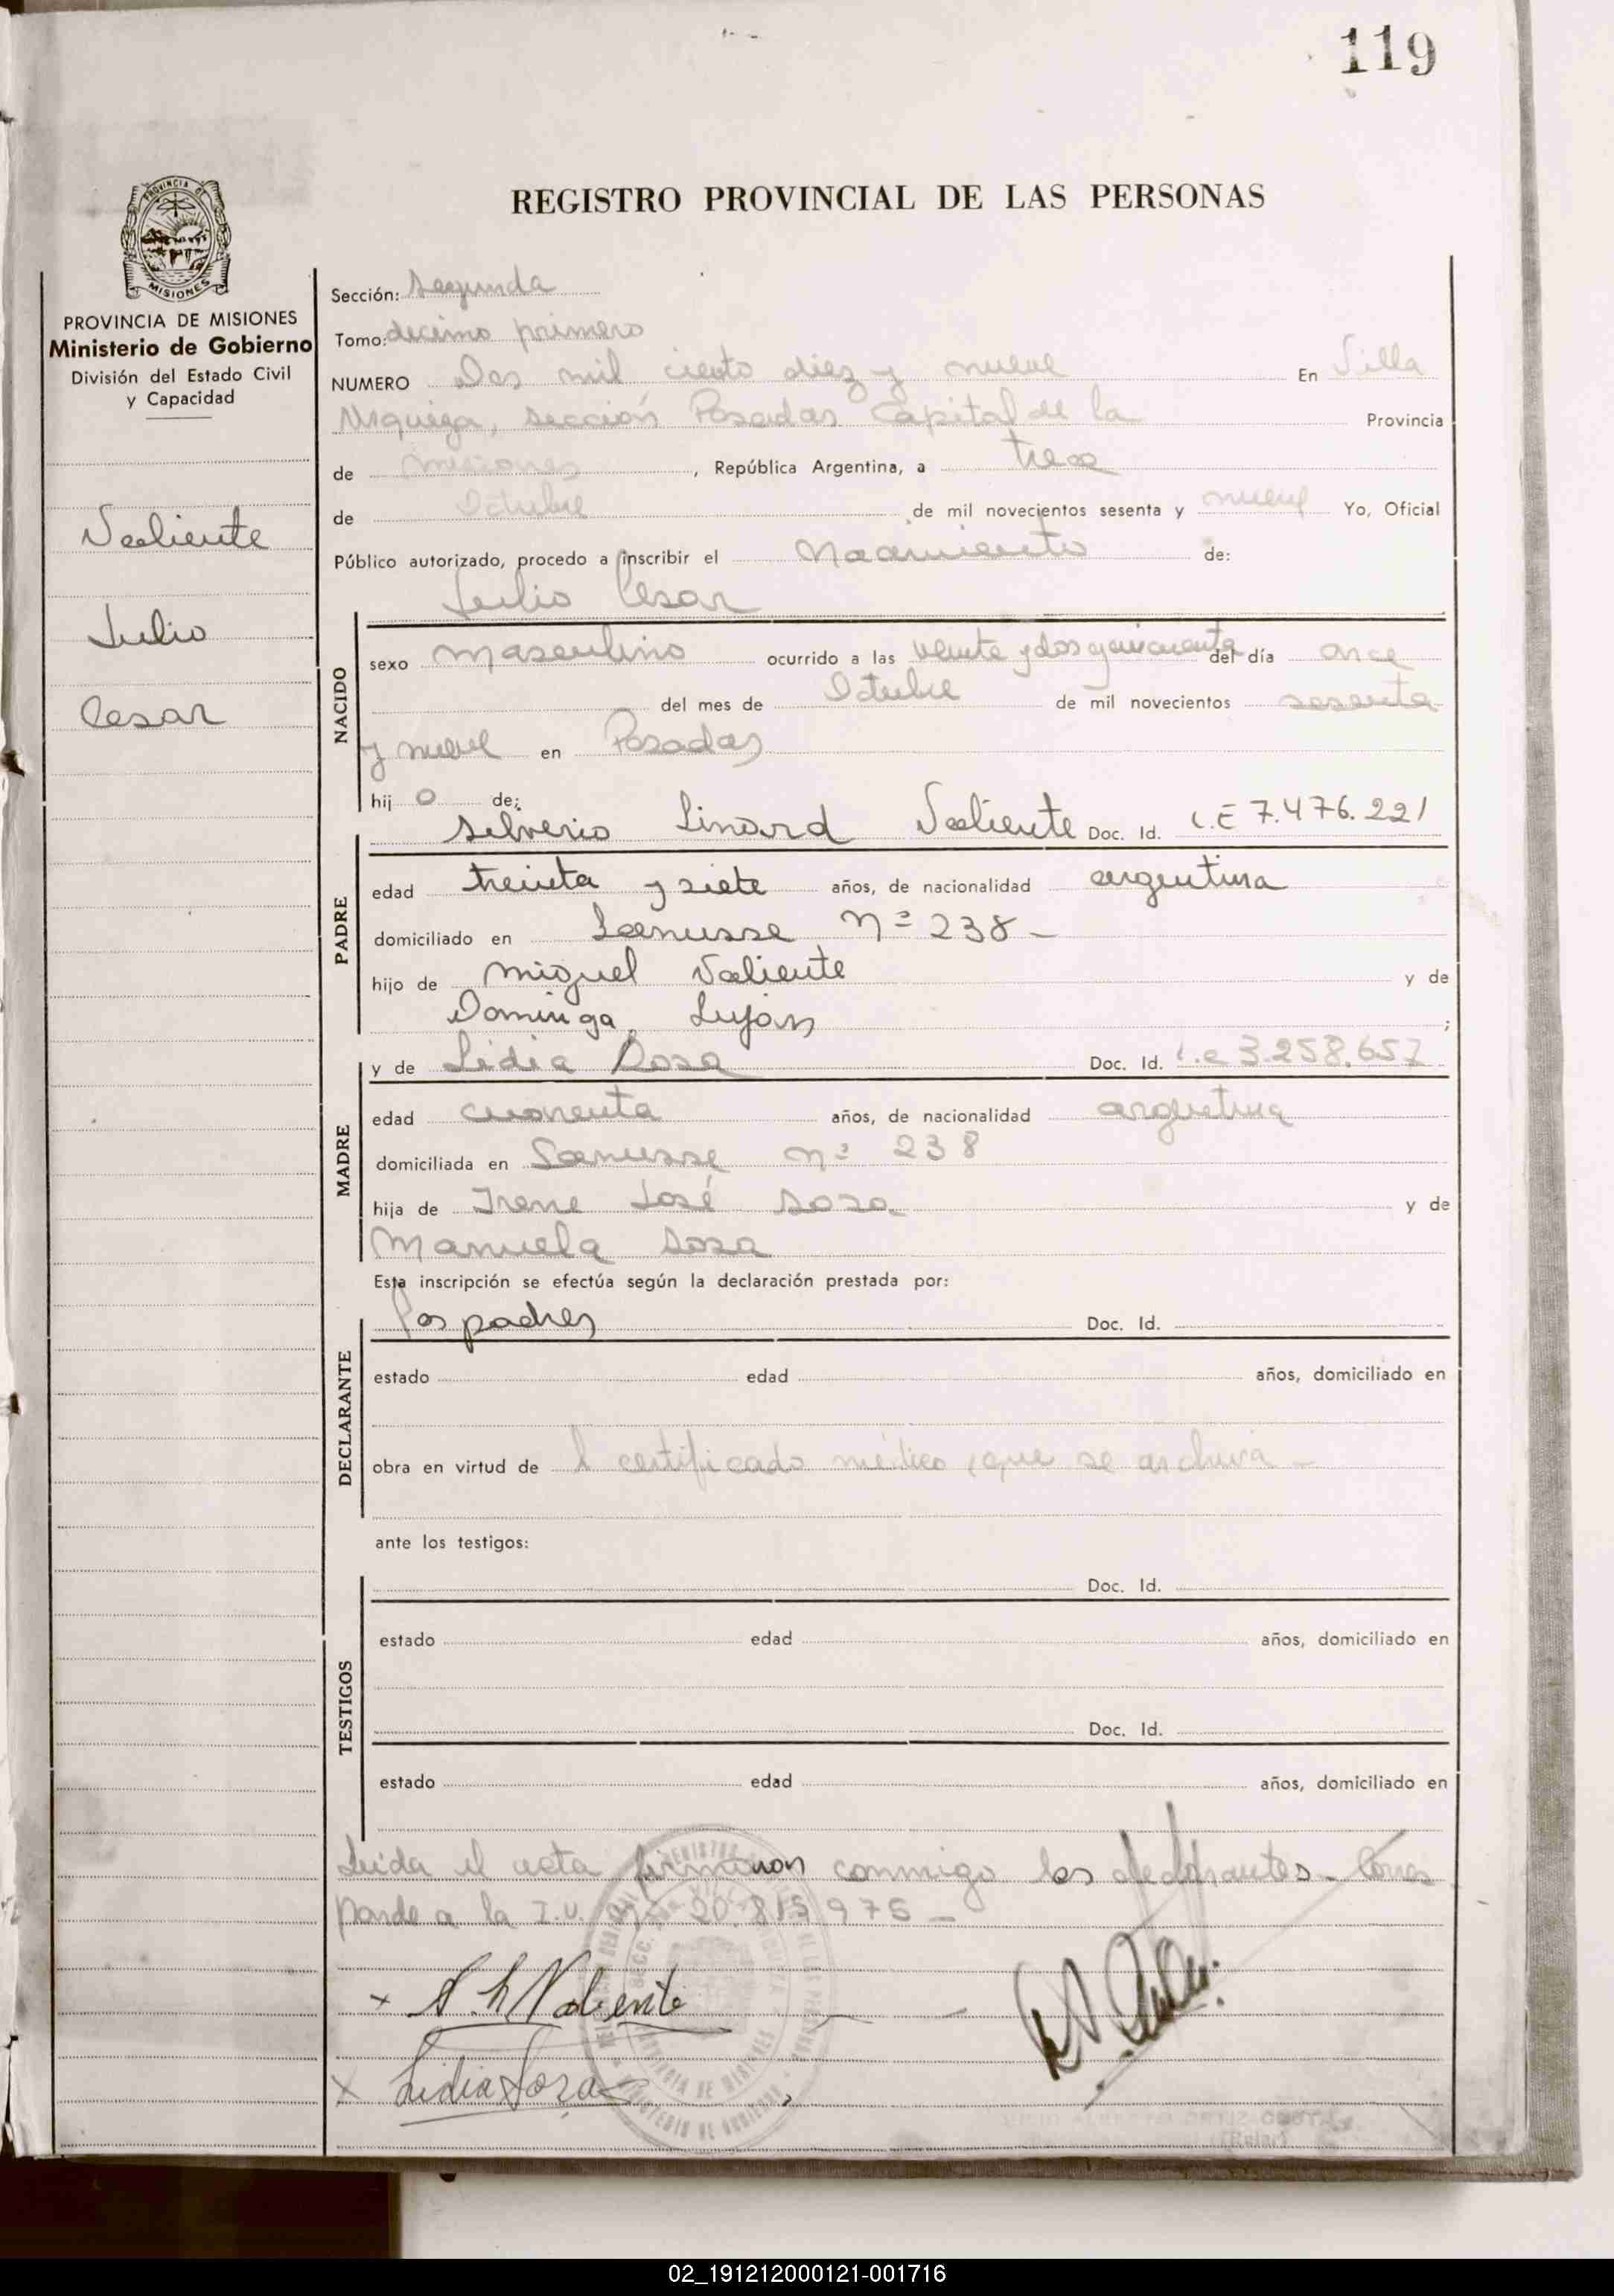 119
REGISTRO PROVINCIAL DE LAS PERSONAS
PROVINCIA DE
MISIONES
PROVINCIA DE MISIONES
Ministerio de Gobierno
División del Estado Civil
y Capacidad
Valiente
Julio
Cesar
Sección: Segunda
Tomo: decimo primero
NUMERO Dos mil ciento diez y nueve En Villa
Urquiza, sección Posadas Capital de la Provincia
de Misiones, República Argentina, a trece
de Octubre de mil novecientos sesenta y nueve Yo, Oficial
Público autorizado, procedo a inscribir el Nacimiento de:
Julio Cesar
NACIDO
sexo masculino ocurrido a las veinte y dos y cincuenta del día once
del mes de Octubre de mil novecientos sesenta
y nueve en Posadas
hijo de:
Silverio Linard Valiente Doc. Id. L.E 7.476.221
PADRE
edad treinta y siete años, de nacionalidad argentina
domiciliado en Lanusse Nº 238 -
hijo de Miguel Valiente y de
Dominga Luján ;
y de Lidia Sosa Doc. Id. L.C 3.258.657
MADRE
edad cuarenta años, de nacionalidad argentina
domiciliada en Lanusse nº 238
hija de Irene José Sosa y de
Manuela Sosa
Esta inscripción se efectúa según la declaración prestada por:
los padres Doc. Id.
DECLARANTE
estado edad años, domiciliado en
obra en virtud de l certificado médico que se archiva -
ante los testigos:
Doc. Id.
TESTIGOS
estado edad años, domiciliado en
Doc. Id.
estado edad años, domiciliado en
Leida el acta firmaron conmigo los declarantes - Corres
ponde a la I.U. Nº 20.819976 -
x S. L Valiente
x Lidia Sosa
02_191212000121-001716